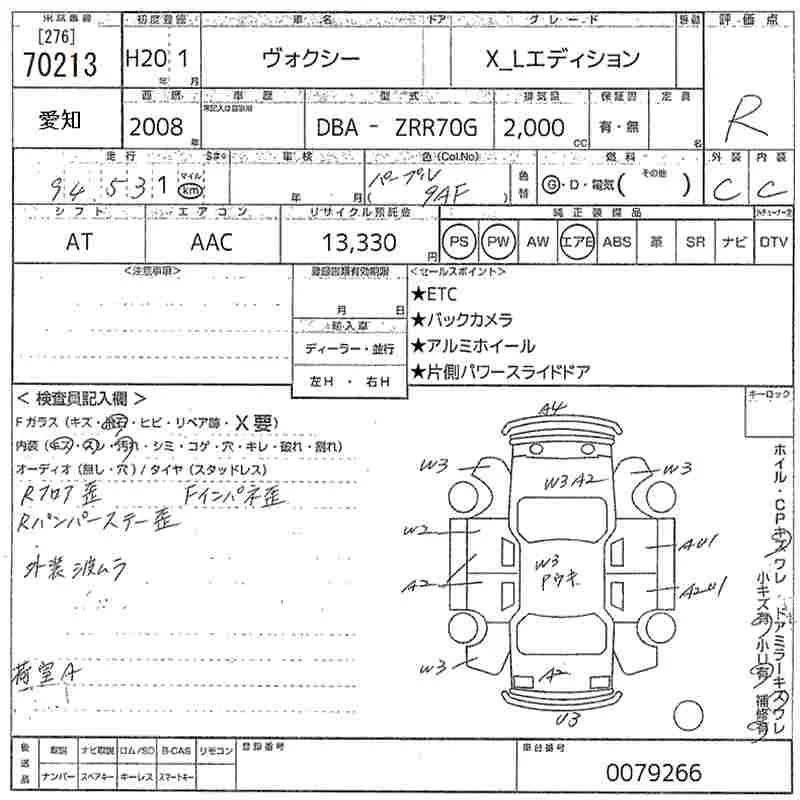 出品番号 初度登録 車名 ドア グレード 移動 評価点
[276]
70213 H20年 1月 ヴォクシー X_Lエディション R
西暦 車歴 型式 排気量 保証書 定員
愛知 2008年 DBA - ZRR70G 2,000CC 有・無 名
走行 車検 色(Col.No) 燃料 外装 内装
94531 マイル km 年 月 パープル (9AF) 色替 G・D・電気( その他 ) C C
シフト エアコン リサイクル預託金 純正装備品
AT AAC 13,330円 PS PW AW エアB ABS 革 SR ナビ DTV
<注意事項> 登録書類有効期限 <セールスポイント>
月 日
★ETC
輸入車
★バックカメラ
ディーラー・並行
★アルミホイール
左H ・ 右H
★片側パワースライドドア
< 検査員記入欄 > キーロック
Fガラス(キズ・飛石・ヒビ・リペア跡・X要)
内装(キズ・スレ・汚れ・シミ・コゲ・穴・キレ・破れ・割れ)
オーディオ(無し・穴)/タイヤ(スタッドレス)
Rフロア歪 Fインパネ歪
Rバンパーステー歪
外装波ムラ
荷室A
A4
W3 W3A2 W3
W2 A01
W3
Pウキ
A2 A201
W3 A2
U3
ホイル・CPキズワレ ドアミラーキズワレ
小キズ有 小U有 補修有
後送品 取説 ナビ取説 ロム/SD B-CAS リモコン 登録番号 車台番号
ナンバー スペアキー キーレス スマートキー
0079266